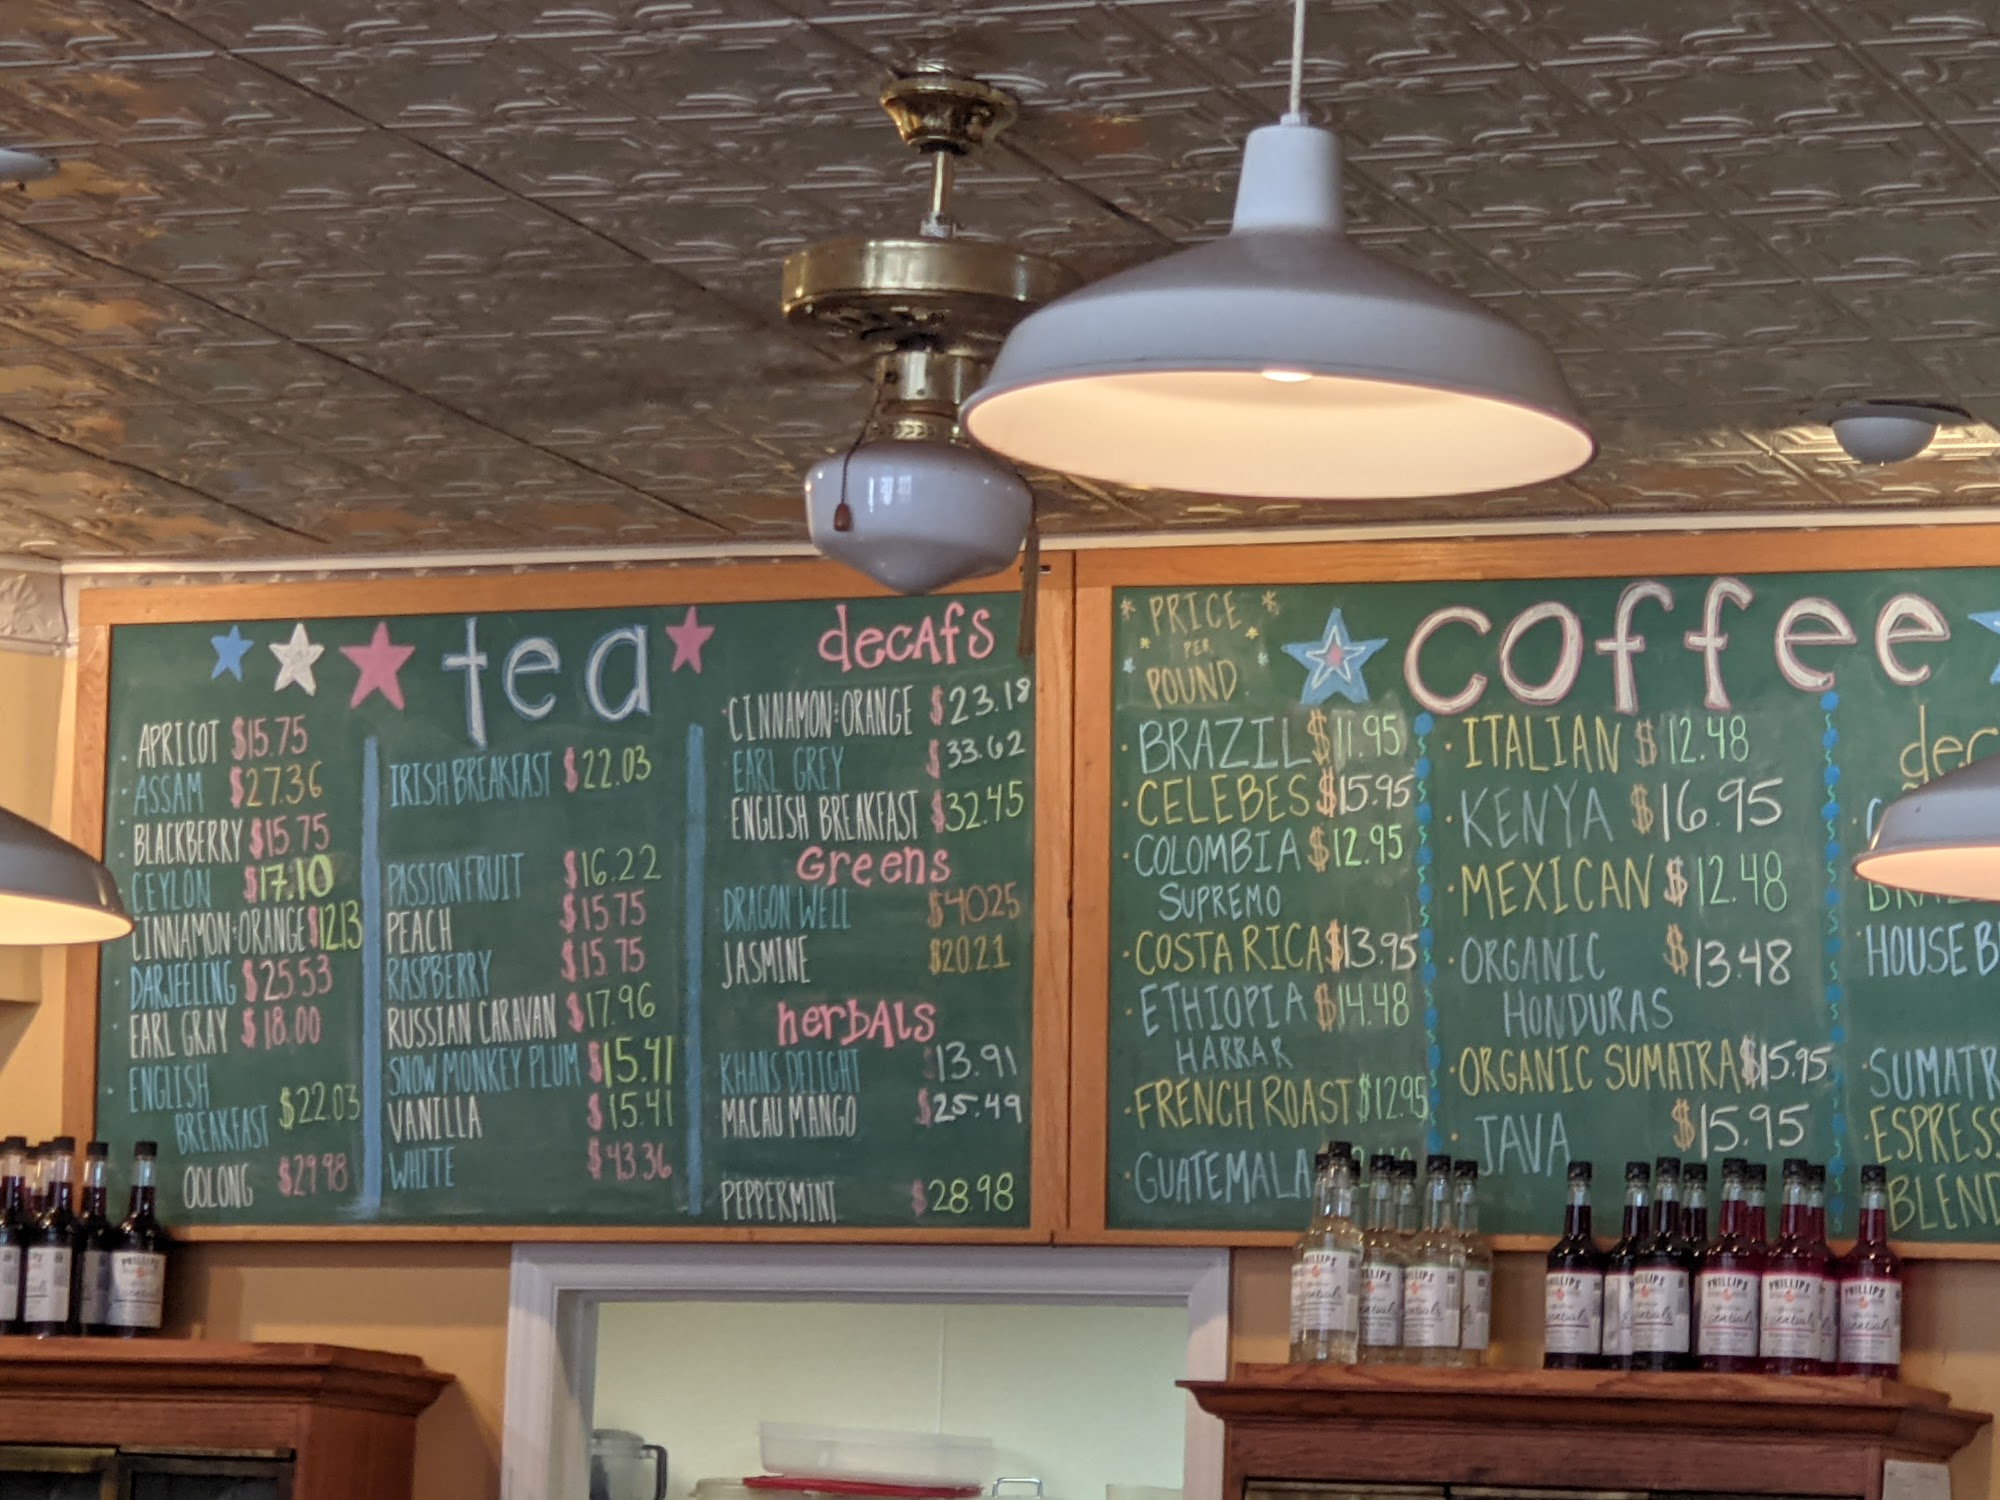 tea
APRICOT $15.75
ASSAM $27.36
BLACKBERRY $15.75
CEYLON $17.10
CINNAMON:ORANGE $12.13
DARJEELING $25.53
EARL GRAY $18.00
ENGLISH
BREAKFAST $22.03
OOLONG $29.98
IRISH BREAKFAST $22.03
PASSION FRUIT $16.22
PEACH $15.75
RASPBERRY $15.75
RUSSIAN CARAVAN $17.96
SNOW MONKEY PLUM $15.41
VANILLA $15.41
WHITE $43.36
decafs
CINNAMON:ORANGE $23.18
EARL GREY $33.62
ENGLISH BREAKFAST $32.45
Greens
DRAGON WELL $4025
JASMINE $20.21
herbals
KHANS DELIGHT $13.91
MACAU MANGO $25.49
PEPPERMINT $28.98
PRICE
PER
POUND
coffee
BRAZIL $11.95
CELEBES $15.95
COLOMBIA $12.95
SUPREMO
COSTA RICA $13.95
ETHIOPIA $14.48
HARRAR
FRENCH ROAST $12.95
GUATEMALA
ITALIAN $12.48
KENYA $16.95
MEXICAN $12.48
ORGANIC $13.48
HONDURAS
ORGANIC SUMATRA $15.95
JAVA $15.95
dec
HOUSE B
SUMATR
ESPRESS
BLEND
PHILLIPS
PHILLIPS
PHILLIPS
PHILLIPS
PHILLIPS
PHILLIPS
PHILLIPS
PHILLIPS
PHILLIPS